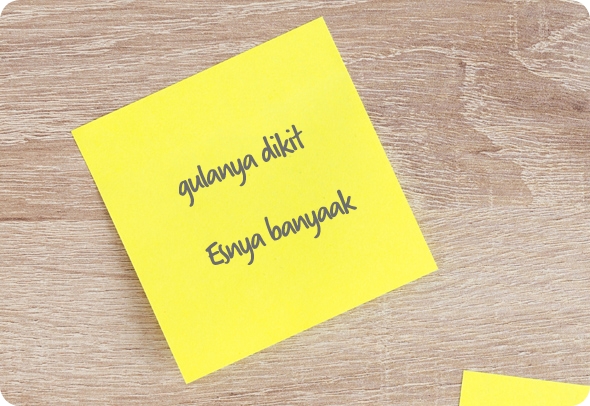 gulanya dikit
Esnya banyaak